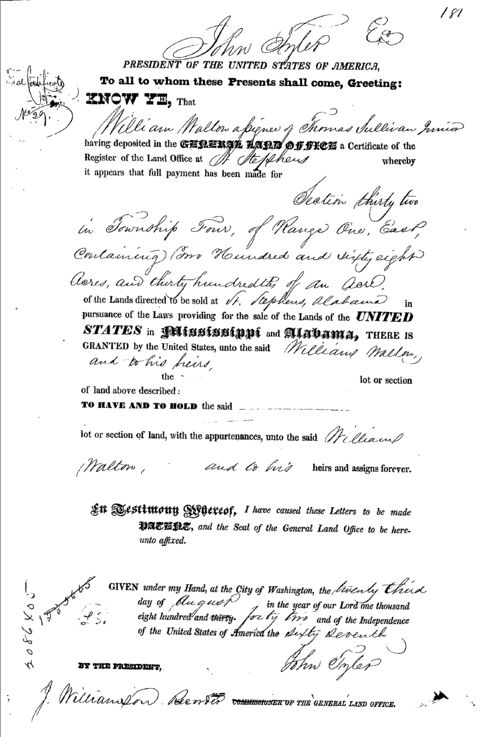 181
John Tyler Esq
PRESIDENT OF THE UNITED STATES OF AMERICA,
To all to whom these Presents shall come, Greeting:
KNOW YE, That
Certificate
No 29
William Walton assignee of Thomas Sullivan Junior
having deposited in the GENERAL LAND OFFICE a Certificate of the
Register of the Land Office at St Stephens whereby
it appears that full payment has been made for
Section thirty two
in Township Four, of Range One, East,
Containing Two Hundred and sixty eight
Acres, and thirty hundredths of an Acre.
of the Lands directed to be sold at St. Stephens, Alabama in
pursuance of the Laws providing for the sale of the Lands of the UNITED
STATES in Mississippi and Alabama, THERE IS
GRANTED by the United States, unto the said William Walton,
and to his heirs,
the lot or section
of land above described:
TO HAVE AND TO HOLD the said
lot or section of land, with the appurtenances, unto the said William
Walton, and to his heirs and assigns forever.
In Testimony Whereof, I have caused these Letters to be made
PATENT, and the Seal of the General Land Office to be here-
unto affixed.
GIVEN under my Hand, at the City of Washington, the twenty third
day of August in the year of our Lord one thousand
eight hundred and thirty- forty two and of the Independence
of the United States of America the Sixty Seventh
L.S.
John Tyler
BY THE PRESIDENT,
J. Williamson Recorder COMMISSIONER OF THE GENERAL LAND OFFICE.